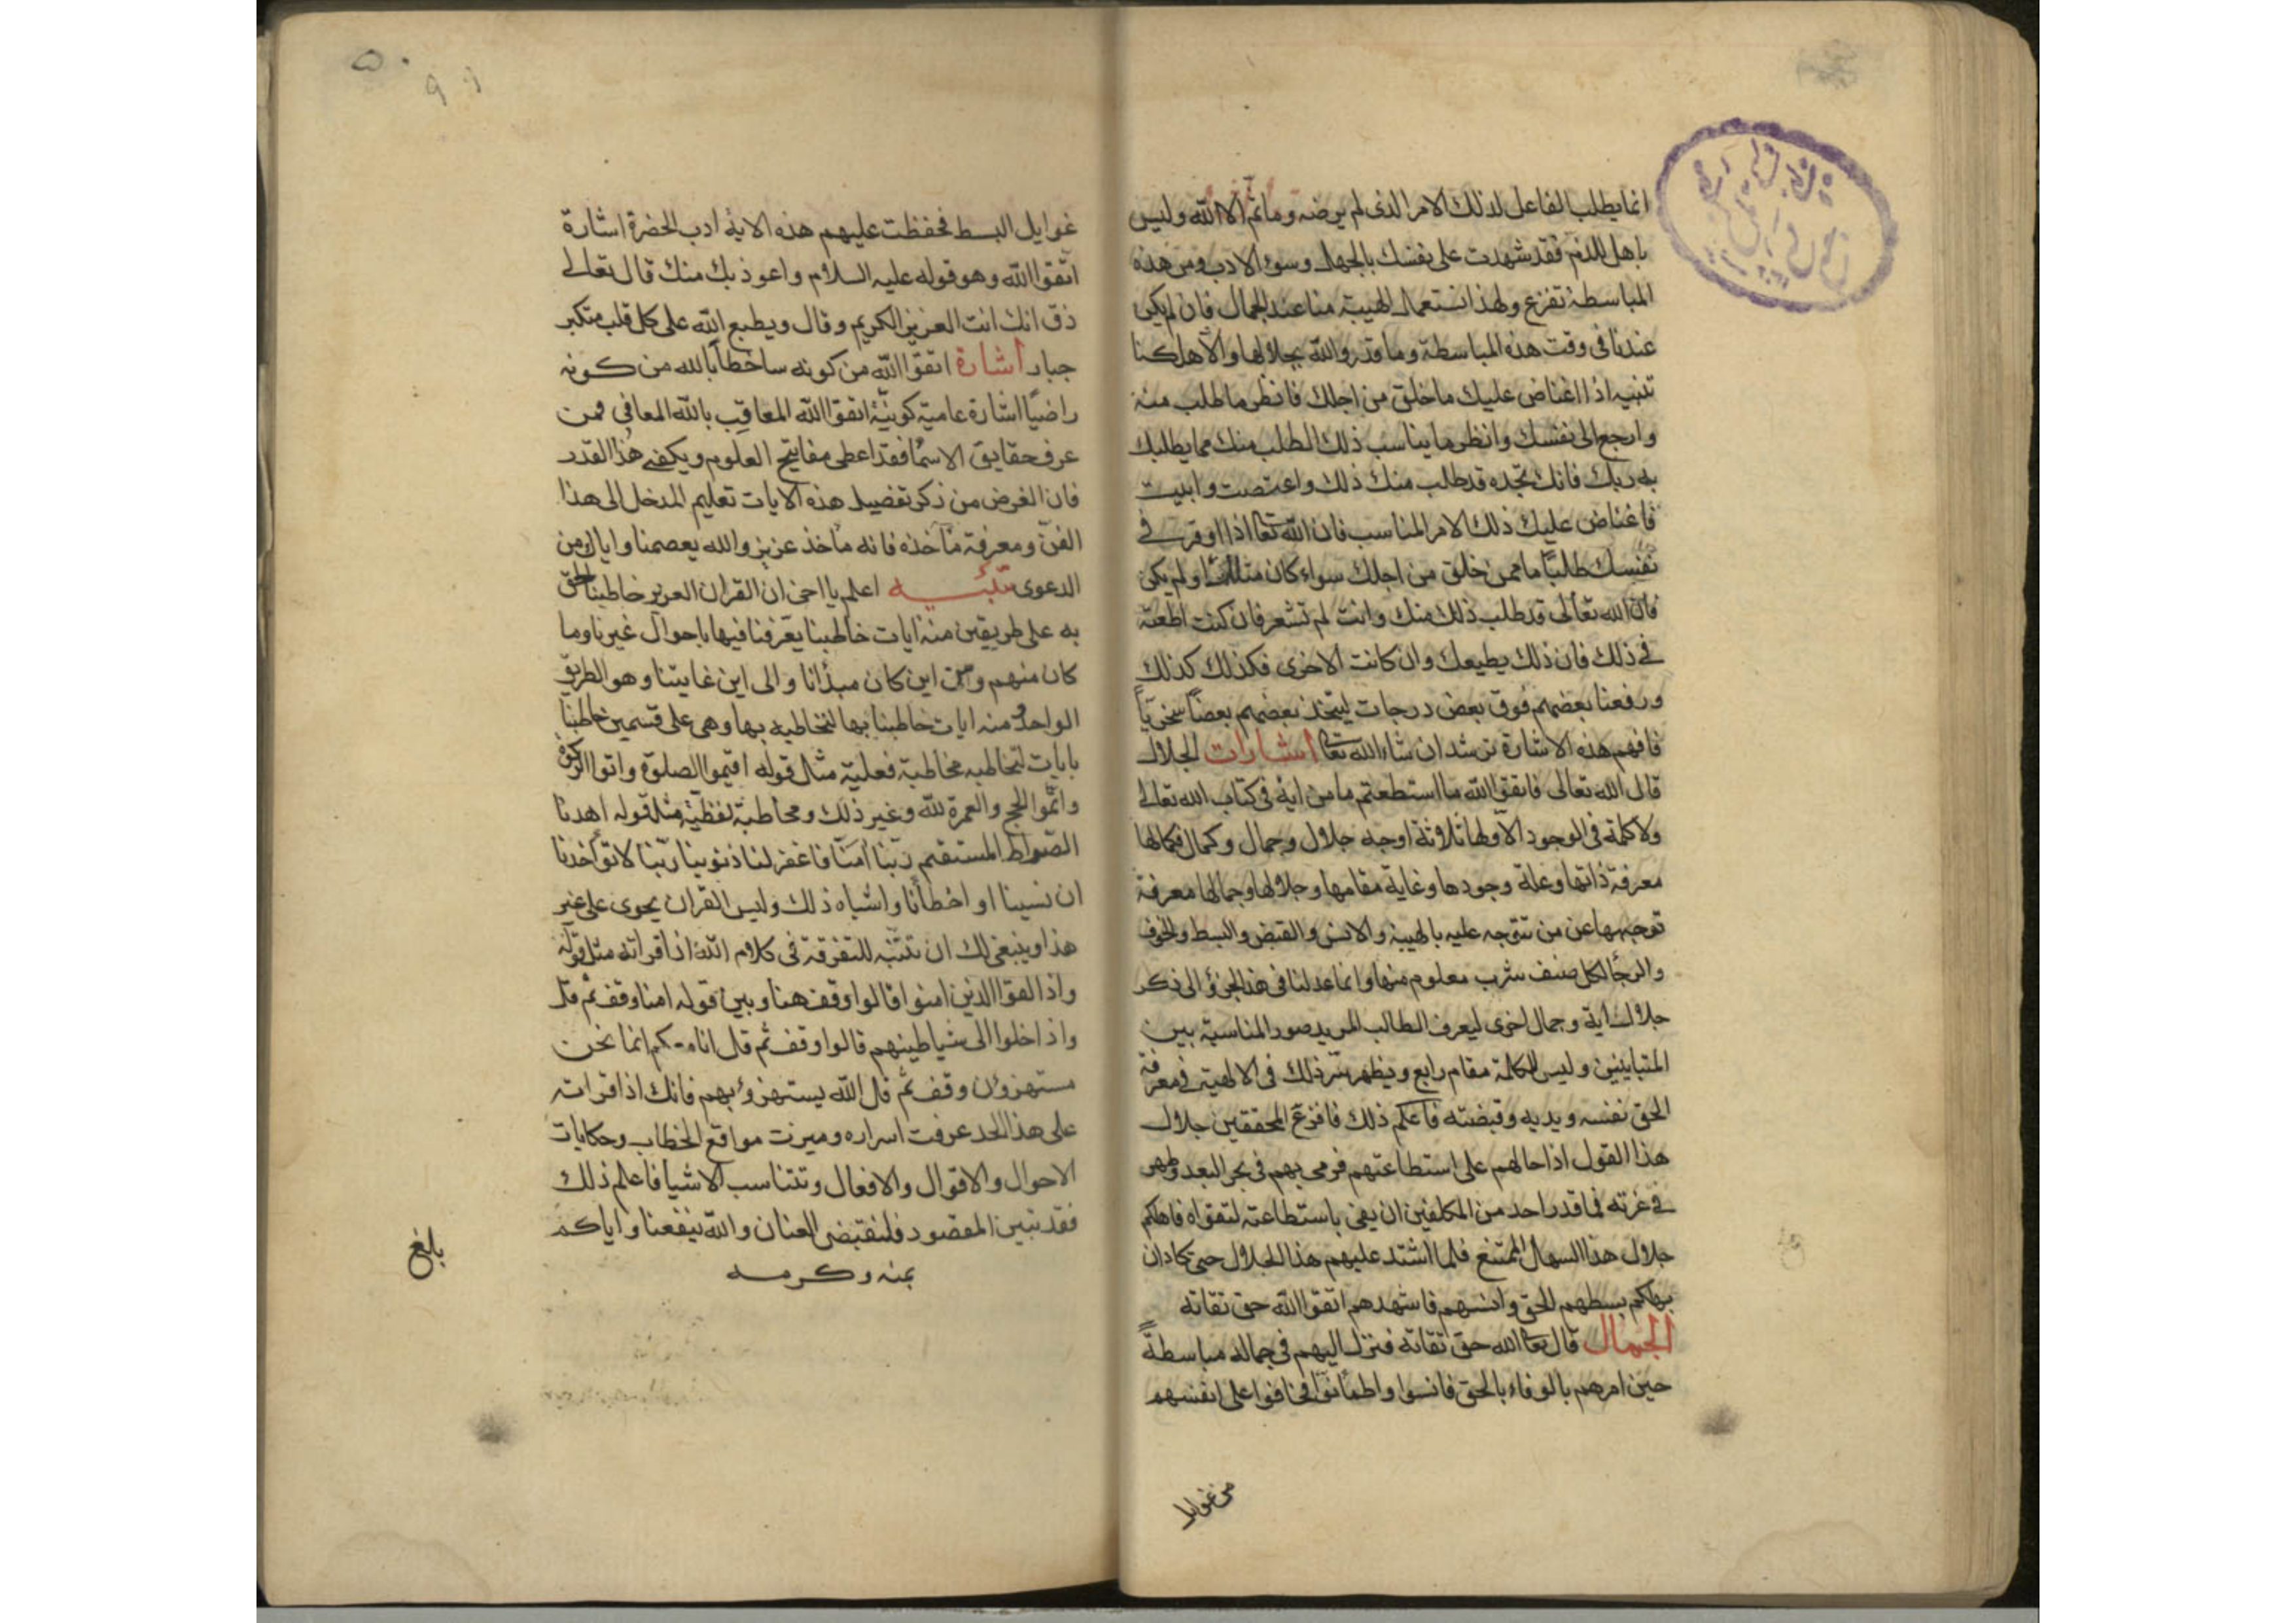 انما يطلب الفاعل لذلك الامر الذى لم يرضه وما ثم الا الله وليس
باهل للذم فقد شهدت على نفسك بالجهل وسوء الادب ومن هذه
المباسطة تفزع ولهذا نستعمل الهيبة منا عند الجمال فان لم يكن
عندنا فى وقت هذه المباسطة وما قدروا الله بجلالها والا هلكنا
تنبيه اذا اغتاض عليك ما خلق من اجلك فانظر ما طلب منه
وارجع الى نفسك وانظر ما يناسب ذلك الطلب منك مما يطلبك
به ربك فانك تجده قد طلب منك ذلك واعتصت وابيت
فاغتاض عليك ذلك الامر المناسب فان الله تعا اذا اوقر فى
نفسك طلبًا ما ممن خلق من اجلك سواء كان او لم يكن
فان الله تعالى قد طلب ذلك منك وانت لم تشعر فان كنت اطعته
فى ذلك فان ذلك يطيعك وان كانت الاخرى فكذلك كذلك
ورفعنا بعضهم فوق بعض درجات ليتخذ بعضهم بعضًا سخريًا
فافهم هذه الاشارة ترشد ان شاء الله تعا اشارات الجلال
قال الله تعالى فاتقوا الله ما استطعتم ما من اية فى كتاب الله تعالى
ولا كلمة فى الوجود الا ولها ثلاثة اوجه جلال وجمال وكمال فكمالها
معرفة ذاتها وعلة وجودها وغاية مقامها وجلالها وجمالها معرفة
توجهها عن من تتوجه عليه بالهيبة والانس والقبض والبسط والخوف
والرجأ لكل صنف شرب معلوم منها وانما عدلنا فى هذا الجزؤ الى ذكر
جلال اية وجمال اخرى ليعرف الطالب المريد صور المناسبة بين
المتباينين وليس للكلمة مقام رابع ويظهر سر ذلك فى الالهية فى معرفة
الحق نفسه ويديه وقبضته فاعلم ذلك فافزع المحققين جلال
هذا القول اذ احالهم على استطاعتهم فرمى بهم فى بحر البعد وظهر
فى عزته فما قدر احد من المكلفين ان يفى باستطاعته لتقواه فاهلكم
جلال هذا السهل الممتنع فلما اشتد عليهم هذا الجلال حتى كادان
يهلكم بسطهم الحق وانسهم فاشهدهم اتقوا الله حق تقاته
الجمال قال تعا الله حق تقاته فنزل اليهم فى جماله مباسطةً
حين امرهم بالوفاء بالحق فانسوا واطمأنوا فخافوا على انفسهم
من غوايل
غوايل البسط فحفظت عليهم هذه الاية ادب الحضرة اشارة
اتقوا الله وهو قوله عليه السلام واعوذ بك منك قال تعالى
ذق انك انت العزيز الكريم وقال ويطبع الله على كل قلب متكبر
جبار اشارة اتقوا الله من كونه ساخطًا بالله من كونه
راضيًا اشارة عامية كونية اتقوا الله المعاقب بالله المعافى فمن
عرف حقايق الاسمأ فقد اعطى مفاتيح العلوم ويكفى هذا القدر
فان الغرض من ذكر تفصيل هذه الايات تعليم المدخل الى هذا
الفن ومعرفة مأخذه فانه مأخذ عزيز والله يعصمنا واياك من
الدعوى تنبيه اعلم يا اخى ان القران العزيز خاطبنا الحق
به على طريقين منه ايات خاطبنا يعرفنا فيها باحوال غيرنا وما
كان منهم ومن اين كان مبدأنا والى اين غايتنا وهو الطريق
الواحد ومنه ايات خاطبنا بها لنخاطبه بها وهى على قسمين خاطبنا
بايات لنخاطبه مخاطبة فعلية مثل قوله اقيموا الصلوة واتوا الزكوة
واتموا الحج والعمرة لله وغير ذلك ومخاطبة لفظية مثل قوله اهدنا
الصراط المستقيم ربنا امنا فاغفر لنا ذنوبنا ربنا لا تؤاخذنا
ان نسينا او اخطأنا واشباه ذلك وليس القران يحوى على غير
هذا وينبغى لك ان تتنبه للتفرقة فى كلام الله اذا قراته مثل قوله
واذا لقوا الذين امنوا قالوا وقف هنا وبين قوله امنا وقف ثم قل
واذا خلوا الى شياطينهم قالوا وقف ثم قل انا معكم انما نحن
مستهزؤن وقف ثم قل الله يستهزؤ بهم فانك اذا قراته
على هذا الحد عرفت اسراره وميزت مواقع الخطاب وحكايات
الاحوال والاقوال والافعال وتتناسب الاشيا فاعلم ذلك
فقد تبين المقصود فلنقبض العنان والله ينفعنا واياكم
بمنه وكرمه
بلغ